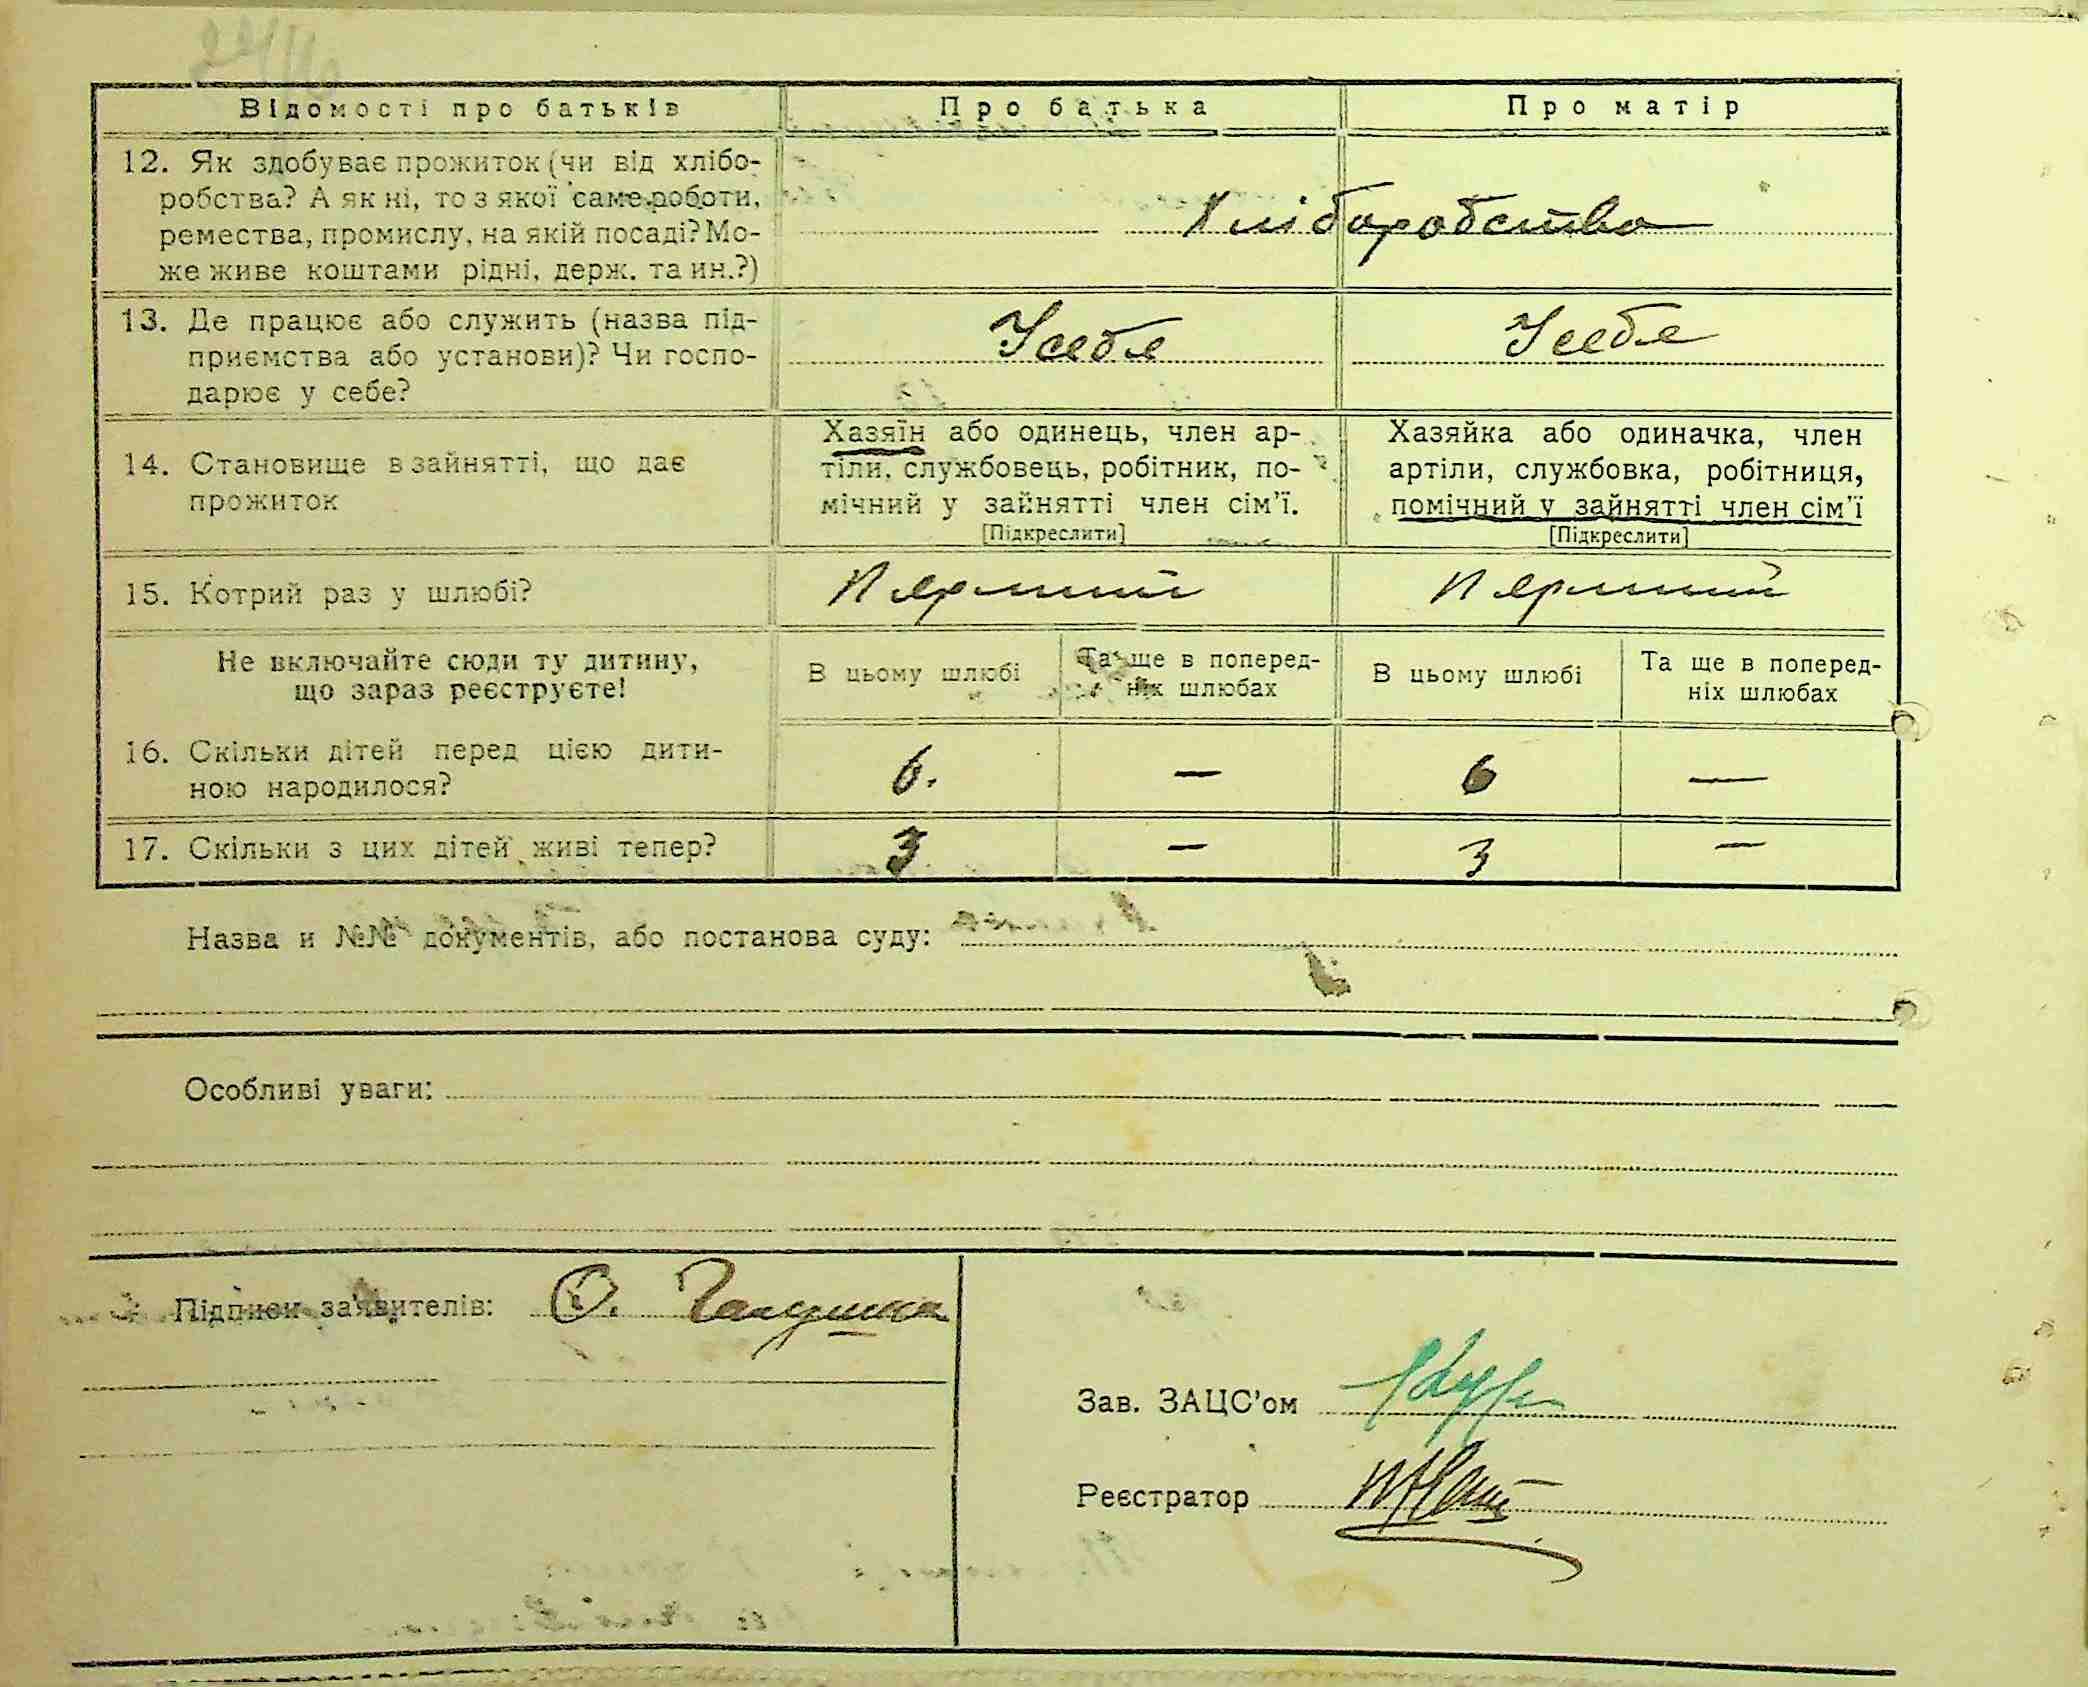 Відомості про батьків
Про батька
Про матір
12. Як здобуває прожиток (чи від хлібо-
робства? А як ні, то з якої саме роботи,
ремества, промислу, на якій посаді? Мо-
же живе коштами рідні, держ. та ин.?)
Хліборобство
13. Де працює або служить (назва під-
приємства або установи)? Чи госпо-
дарює у себе?
У себе
У себе
14. Становище в зайнятті, що дає
прожиток
Хазяїн або одинець, член ар-
тіли, службовець, робітник, по-
мічний у зайнятті член сім'ї.
[Підкреслити]
Хазяйка або одиначка, член
артіли, службовка, робітниця,
помічний у зайнятті член сім'ї
[Підкреслити]
15. Котрий раз у шлюбі?
Перший
Перший
Не включайте сюди ту дитину,
що зараз реєструєте!
В цьому шлюбі
Та ще в поперед-
ніх шлюбах
В цьому шлюбі
Та ще в поперед-
ніх шлюбах
16. Скільки дітей перед цією дити-
ною народилося?
6. — 6 —
17. Скільки з цих дітей живі тепер?
3 — 3 —
Назва и №№ документів, або постанова суду:
Особливі уваги:
Підписи заявителів: О. Галушка
Зав. ЗАЦС'ом
Реєстратор